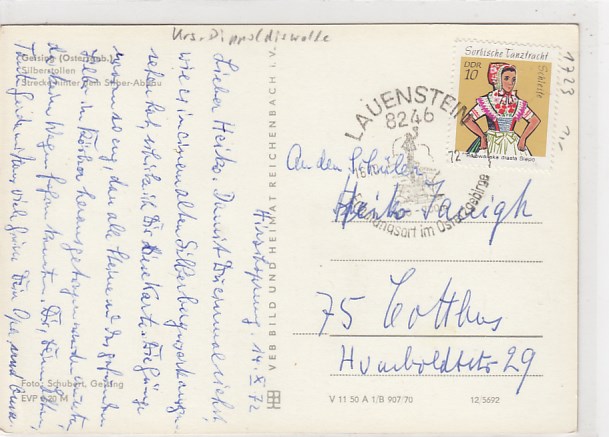 Krs. Dippoldiswalde
Geising (Osterzgeb.)
Silberstollen
Strecke hinter dem Silber-Abbau
Hirschsprung. 14. X 72
Lieber Heiko! Damit Du einmal siehst,
wie es in einem alten Silberbergwerk ausge-
sehen hat, schicke ich Dir diese Karte. Die Gänge
waren so eng, daß alle Steine des gefundenen
in Körben herausgetragen werden mußten,
da kein Wagen fahren konnte. Dir,
viele Grüße Dein Opa und Oma
Foto: Schubert, Geising
EVP 0,20 M
VEB BILD UND HEIMAT REICHENBACH i. V.
Sorbische Tanztracht
DDR
10
Schleife
1723
LAUENSTEIN
8246
Erholungsort im Osterzgebirge
An den Schüler
Heiko
75 Cottbus
Humboldtstr 29
V 11 50 A 1/B 907/70
12/3692